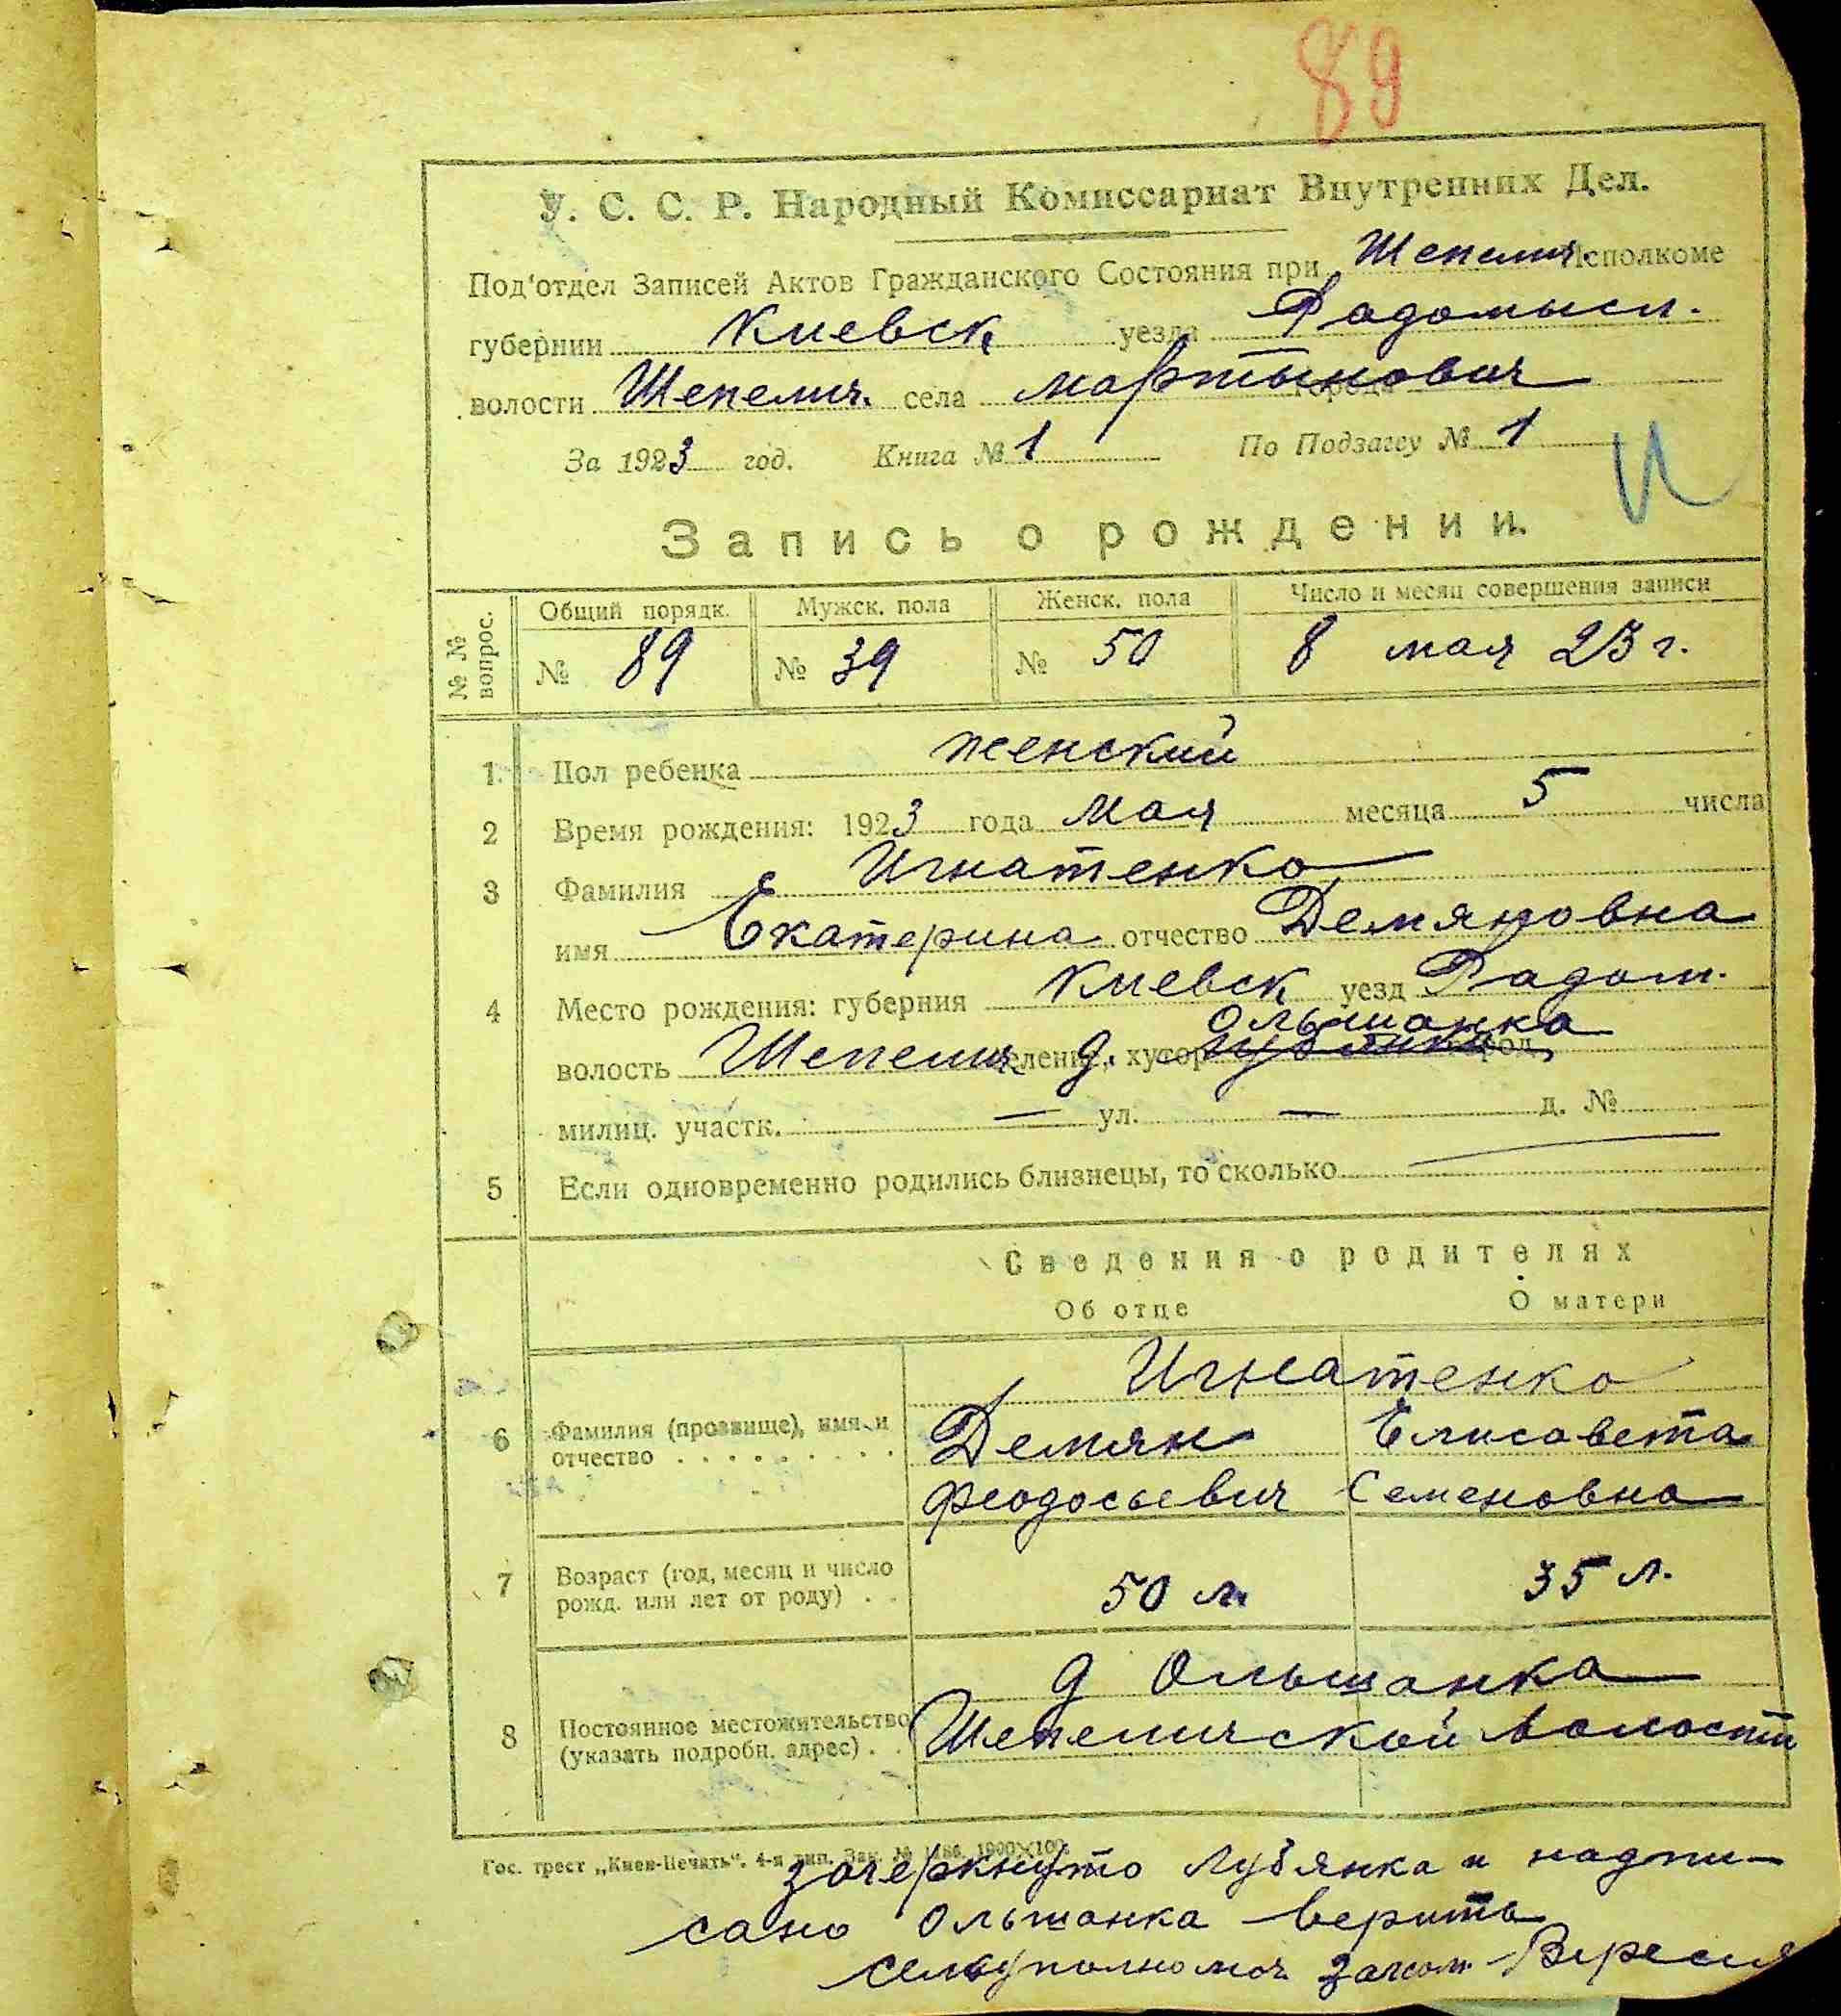 89
У. С. С. Р. Народный Комиссариат Внутренних Дел.
Под'отдел Записей Актов Гражданского Состояния при Шепелич. Исполкоме
губернии Киевск уезда Радомысл.
волости Шепелич. села Мартынович города
За 1923 год. Книга № 1 По Подзагсу № 1
Запись о рождении.
№ № вопрос. Общий порядк. Мужск. пола Женск. пола Число и месяц совершения записи
№ 89 № 39 № 50 8 мая 23 г.
1 Пол ребенка женский
2 Время рождения: 1923 года мая месяца 5 числа
3 Фамилия Игнатенко
имя Екатерина отчество Демяновна
4 Место рождения: губерния Киевск уезд Радом.
Ольшанка
волость Шепелич селение, д. хутор Лубянка город
милиц. участк. — ул. — д. №
5 Если одновременно родились близнецы, то сколько
Сведения о родителях
Об отце О матери
Игнатенко
6 Фамилия (прозвище), имя и Демян Елисавета
отчество Феодосьевич Семеновна
7 Возраст (год, месяц и число
рожд. или лет от роду) 50 л. 35 л.
д Ольшанка
8 Постоянное местожительство Шепеличской волости
(указать подробн. адрес)
Гос. трест „Киев-Печать". 4-я тип. Зак. №
зачеркнуто Лубянка и надпи-
сано Ольшанка верить